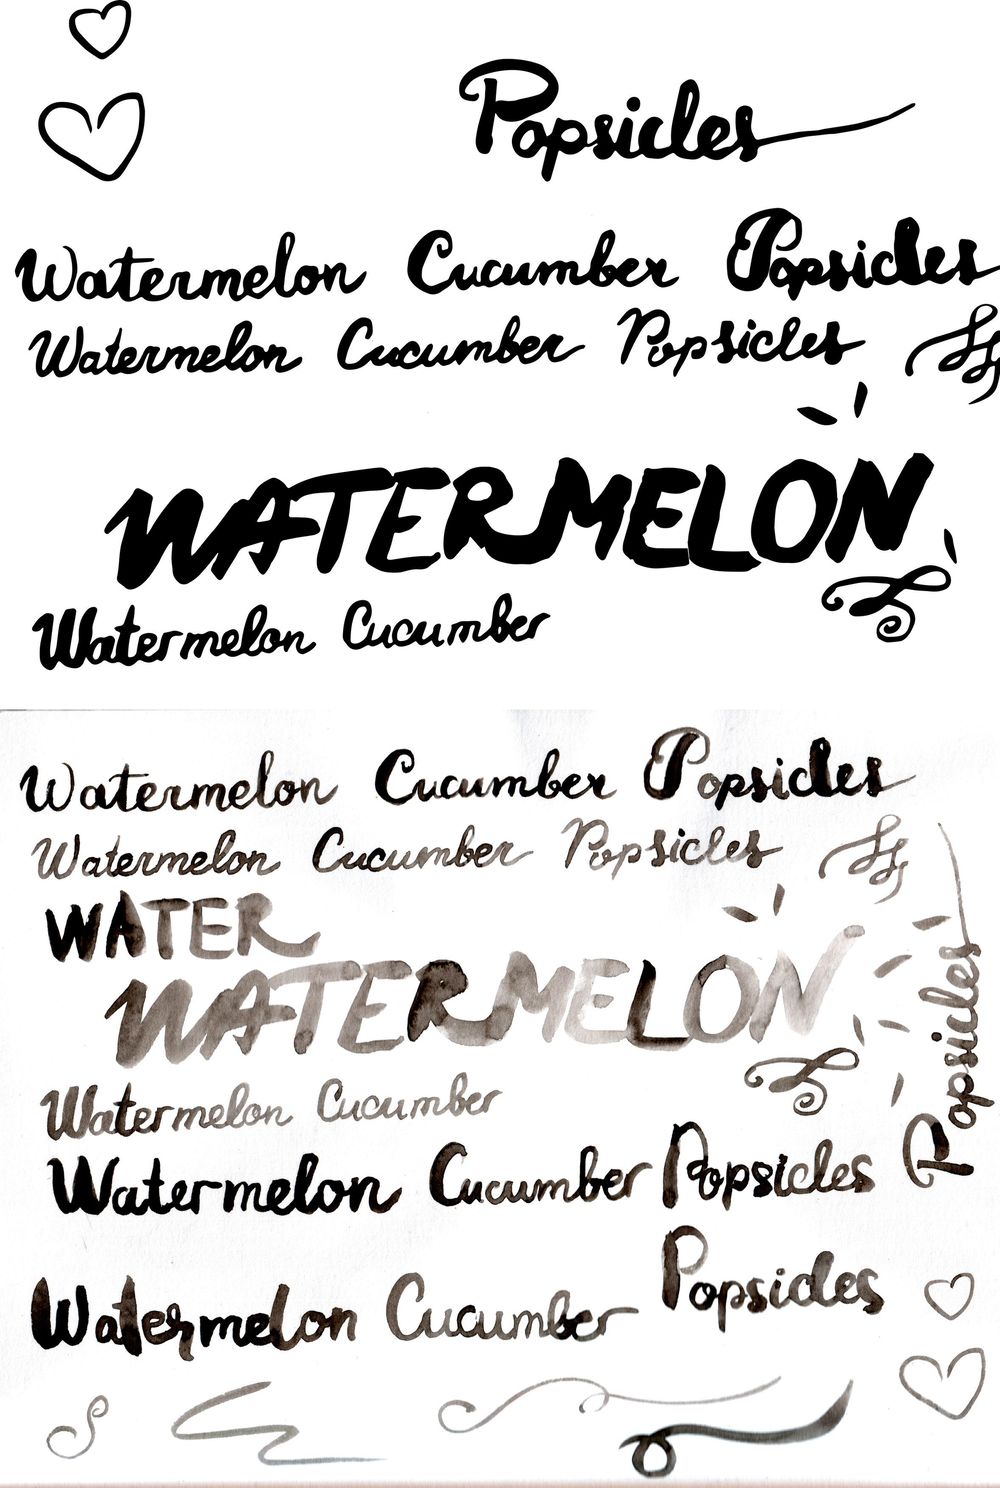 Popsicles
Watermelon Cucumber Popsicles
Watermelon Cucumber Popsicles
WATERMELON
Watermelon Cucumber
Watermelon Cucumber Popsicles
Watermelon Cucumber Popsicles
WATER
WATERMELON
Popsicles
Watermelon Cucumber
Watermelon Cucumber Popsicles
Watermelon Cucumber Popsicles